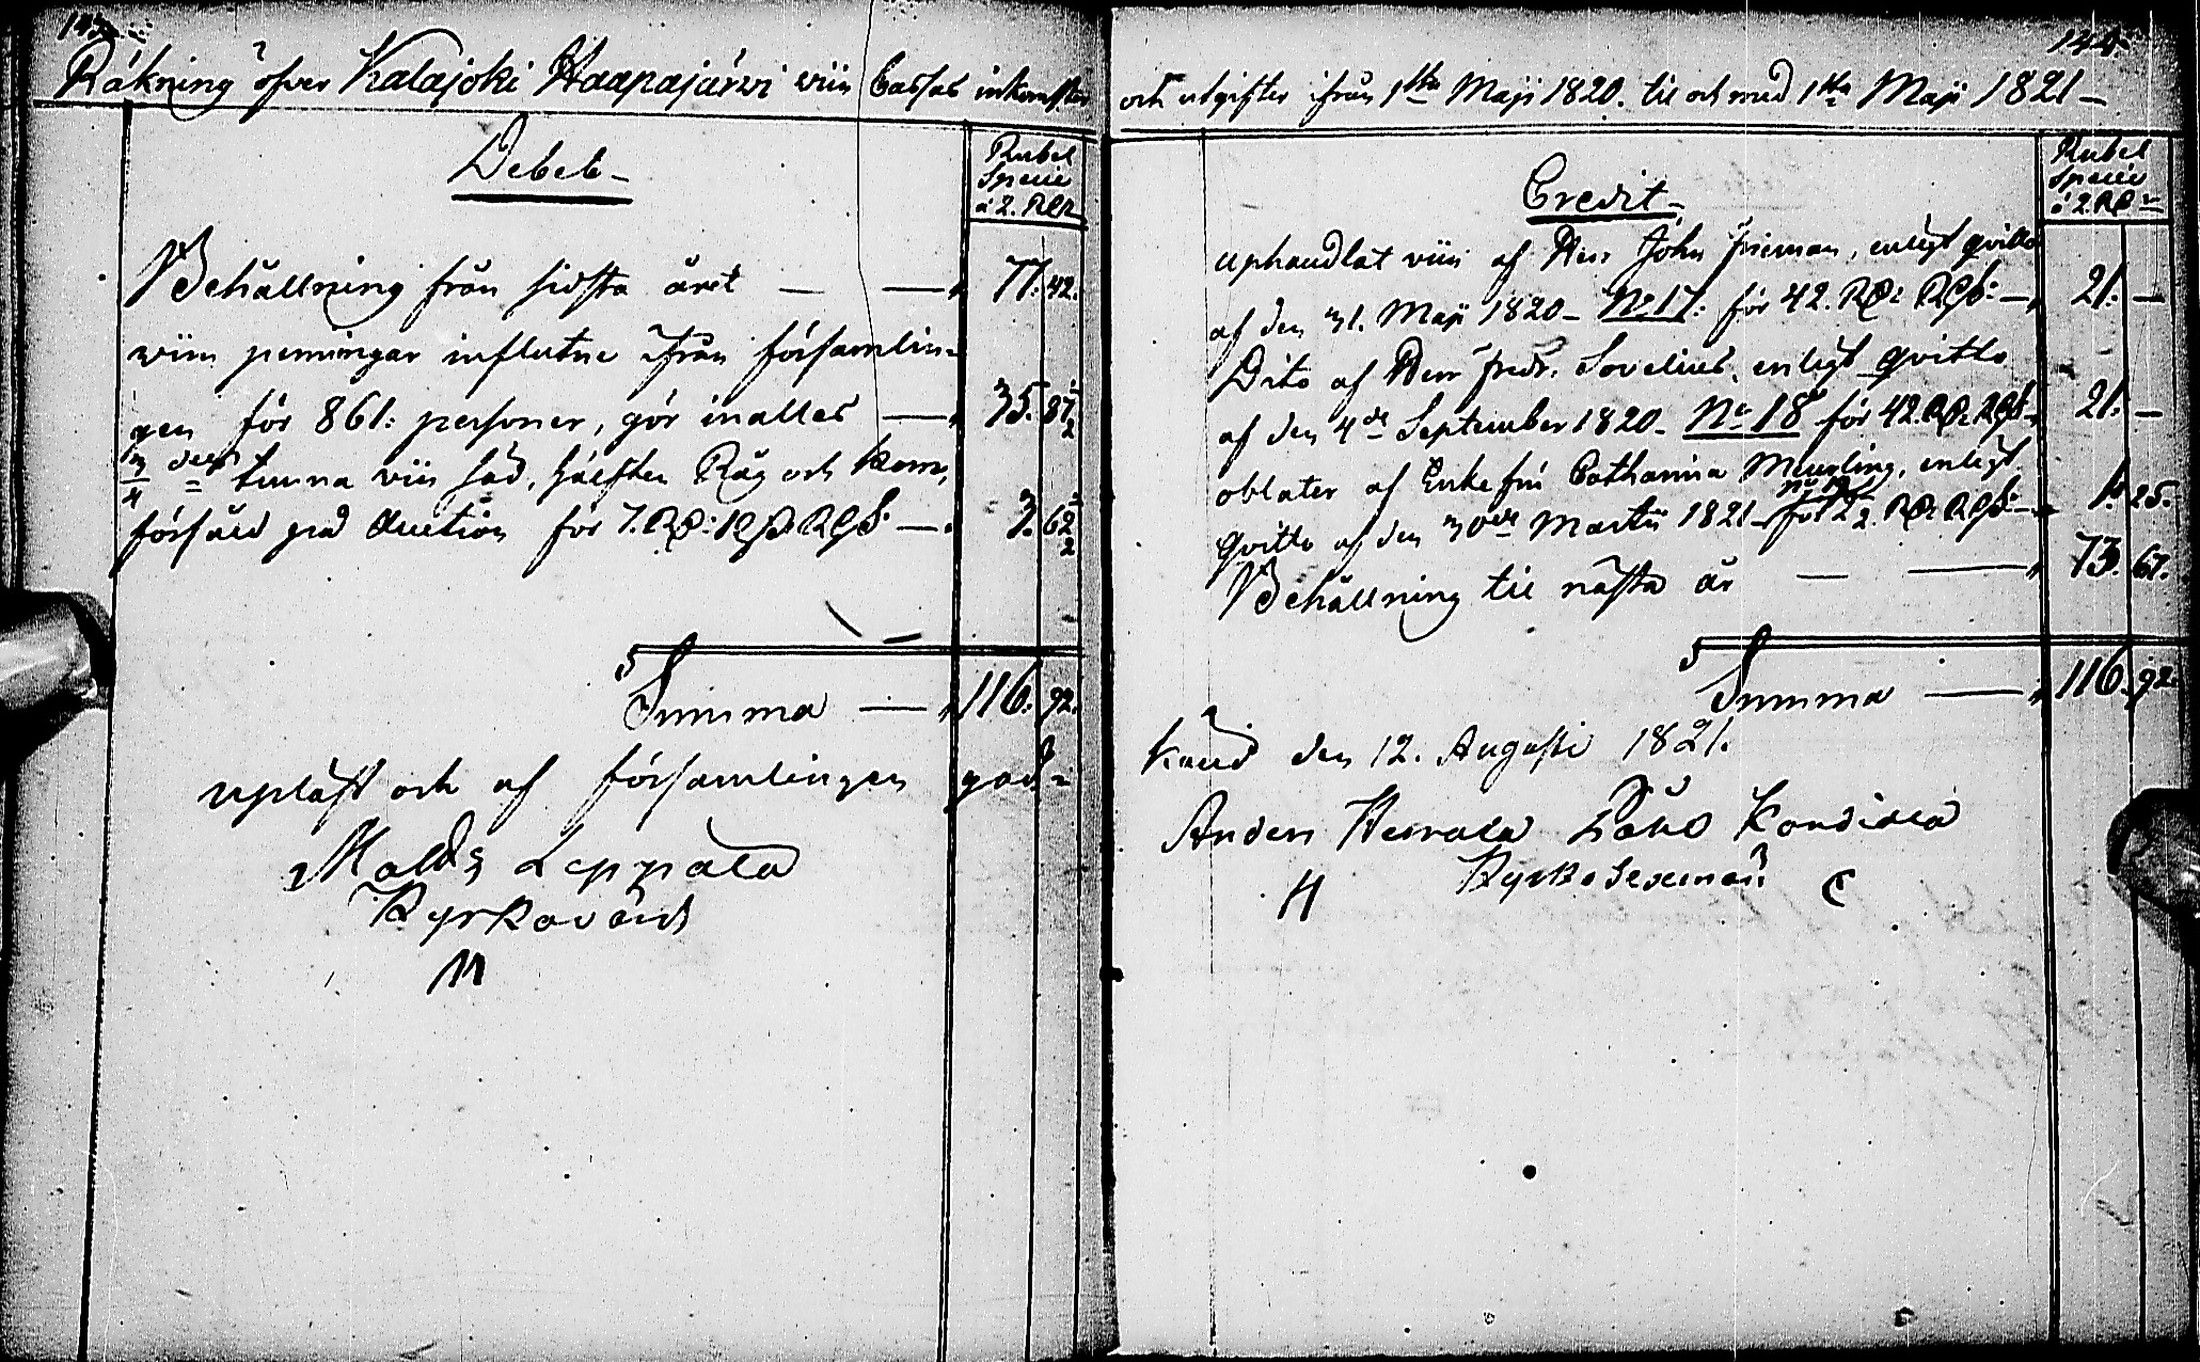 143.
Räkning öfver Kalajoki Haapajärvi viin Cassas inkomster
Debet
Rubel
Specie
à 2. RDr
Behållning från sidsta året — — 77. 42.
viin penningar influtne ifrån församlin-
gen för 861: personer, gör inalles — 35. 87 1/2
3/4 dels tunna viin säd, hälften Råg och korn,
försåld på Auction för 7. RD: 12 s. RGS — 3. 62 1/2
Summa — 116. 92.
upläst och af församlingen god-
Matts Leppälä
Kyrkovärd
M
144.
och utgifter ifrån 1sta Maji 1820. til och med 1sta Maji 1821 —
Credit
Rubel
Specie
à 2. RDr
uphandlat viin af Herr John Frieman, enligt qvitto
af den 31. Maji 1820 — No 17: för 42. RDr RGS: — 21. —
Dito af Herr Fredr. Sovelius, enligt qvitto
af den 4de September 1820 — No 18 för 42. RDr RGS — 21. —
oblater af Enkefru Catharina Meurling, enligt
qvitto af den 30de Martii 1821 — No 19 för 2 1/2. RDr RGS — 1. 25.
Behållning til nästa år — — 73. 67.
Summa — 116. 92.
känd den 12. Augusti 1821.
Anders Herrala
Kyrko Sexmän
H C